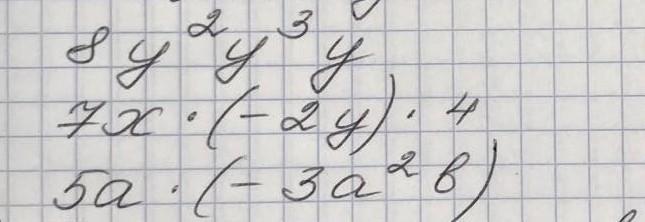 8y²y³y
7x · (-2y) · 4
5a · (-3a²b)